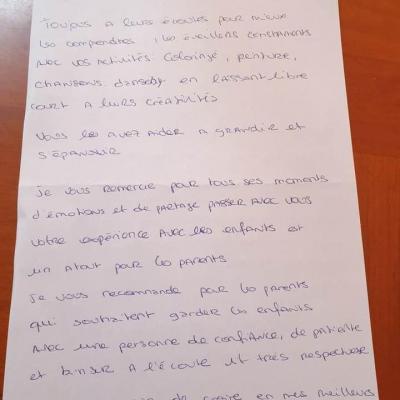 Toujous a leurs écoutes pour mieux
les comprendres, les éveillons constaments
avec vos activités Coloriage, peinture,
chansons, dansesby en laissant libre
court a leurs créativités
Vous les avez aider a grandir et
s'épanouir
Je vous remercie pour tous ses moments
d'émotions et de partage passer avec vous
votre expérience avec les enfants est
un atout pour les parents
Je vous recommande pour les parents
qui souhaitent garder les enfants
avec une personne de confiance, de patiente
et biensur a l'écoute et très respectueuse
de croire en mes meilleurs